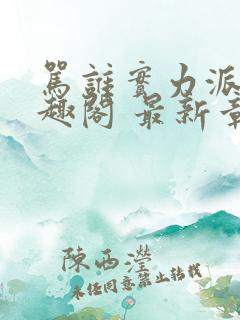 罵誰實力派
趣閣 最新章
陳西瀅
未經同意禁止轉載